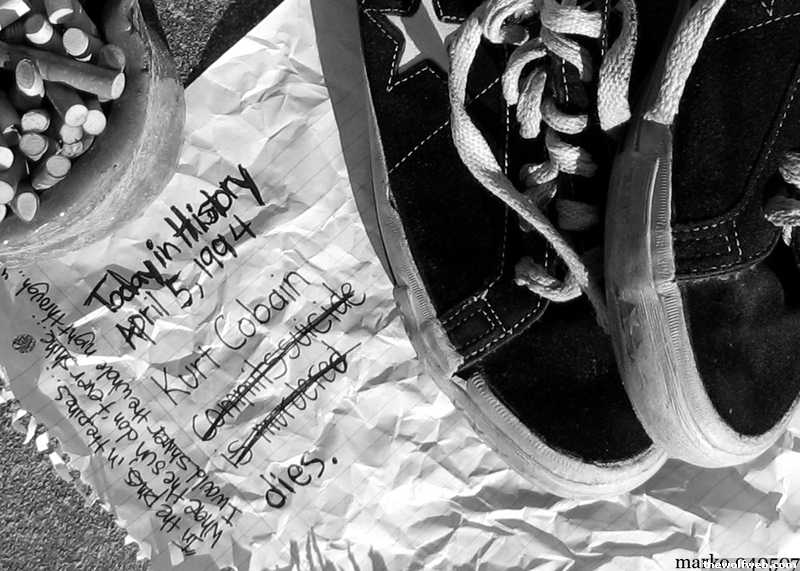 Today in History
April 5, 1994
Kurt Cobain
commits suicide
is murdered
dies.
In the pines in the pines.
Where the sun don't ever shine
I would shiver the whole night through..
marko
thewolfweb.com